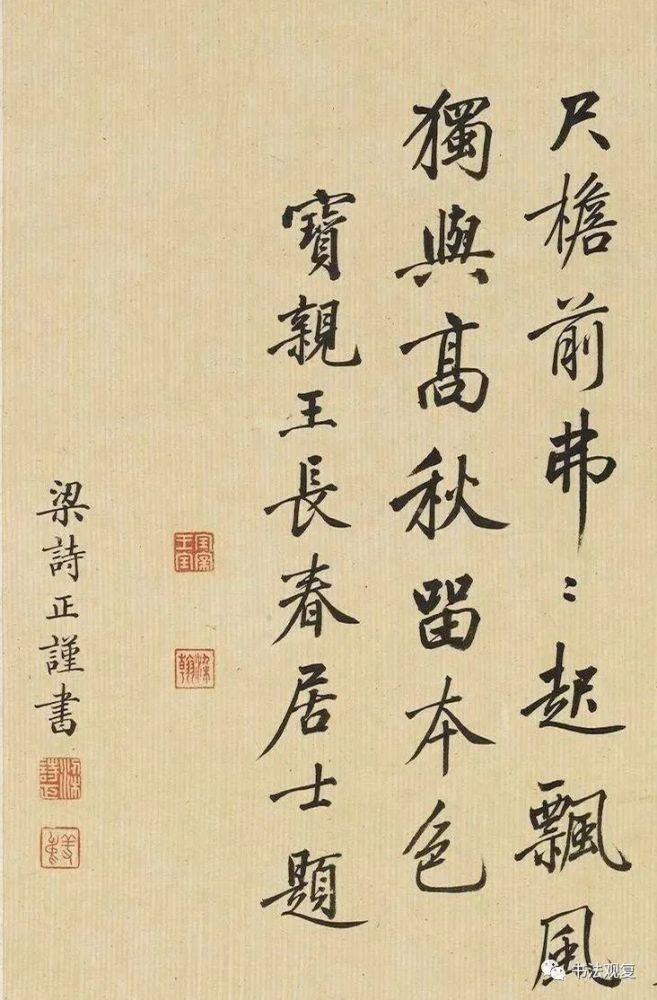 尺檐前弗〻起飄風
獨與高秋留本色
寶親王長春居士題
梁詩正謹書
書法观复